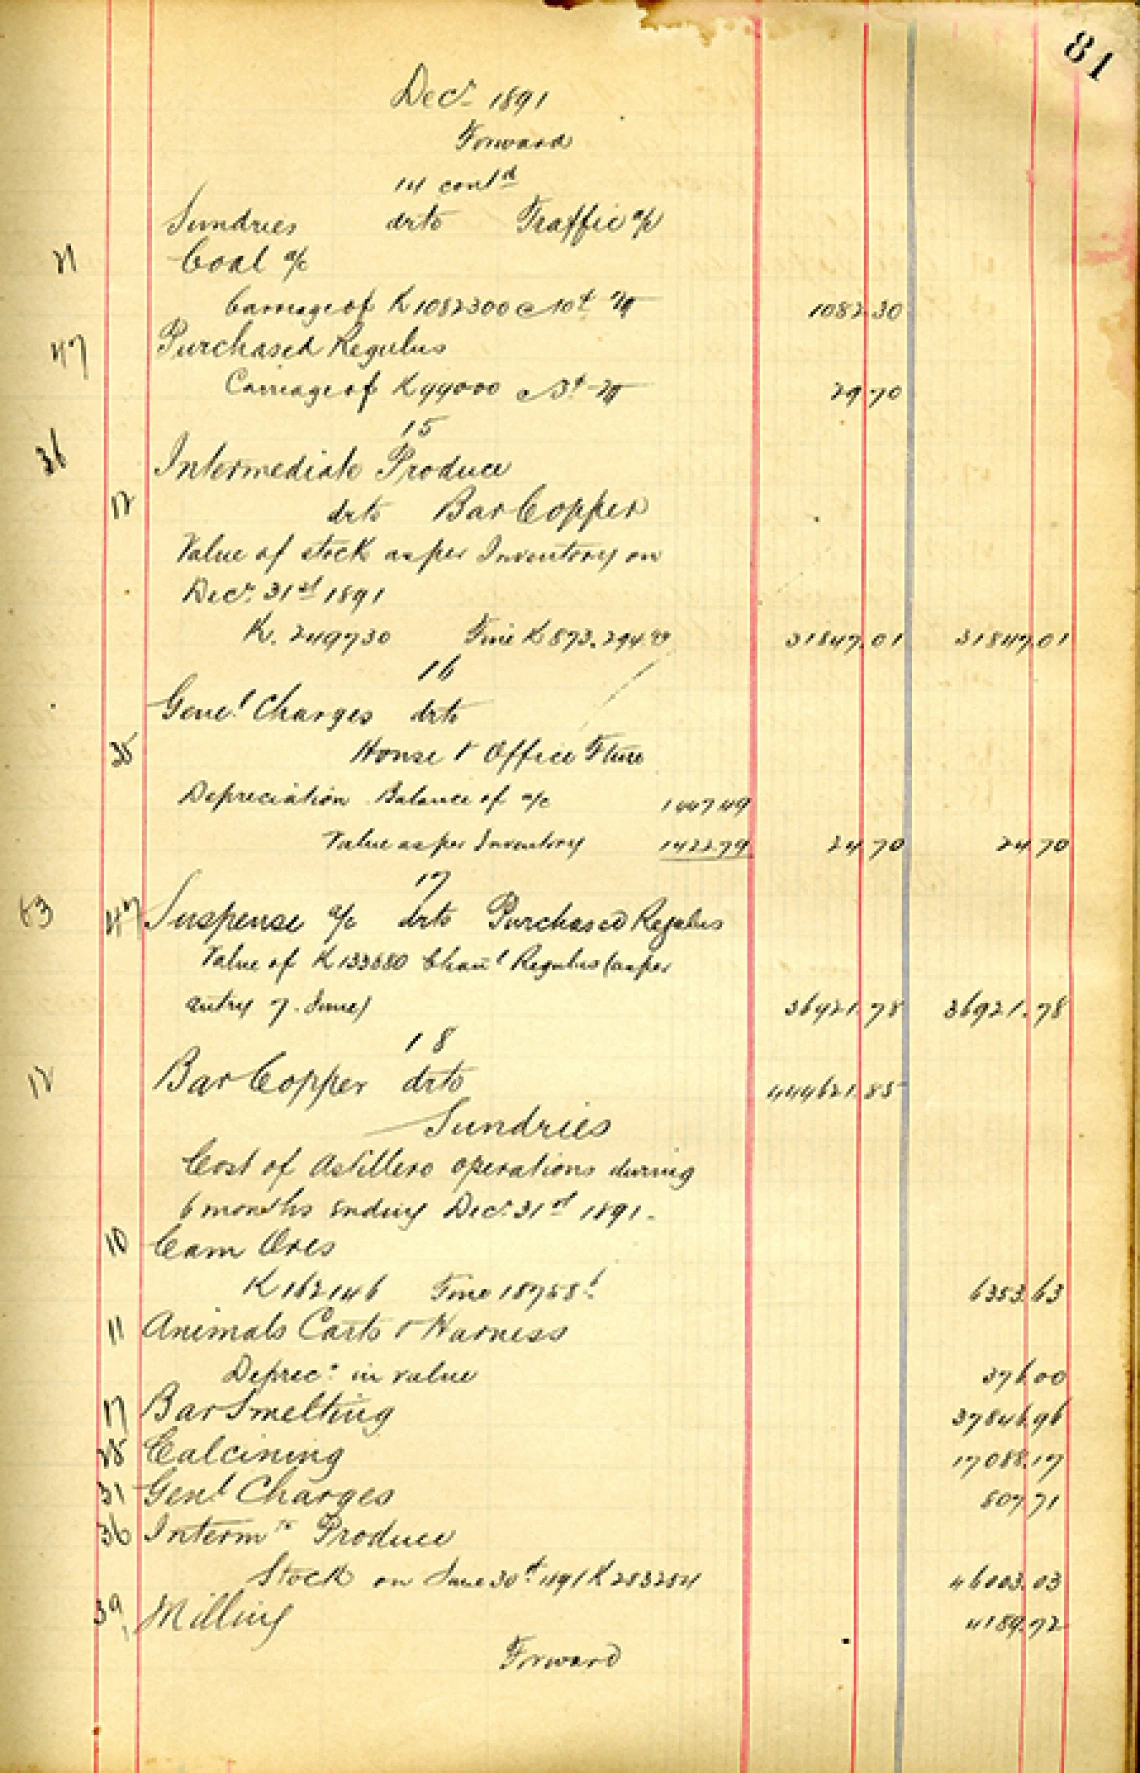 81
Decr 1891
Forward
14 contd
Sundries drto Traffic a/c
21 Coal a/c
Carriage of K 1082300 @ 10 1082.30
47 Purchased Regulus
Carriage of K 99000 @ 3 29.70
15
36 Intermediate Produce
12 drto Bar Copper
Value of stock as per Inventory on
Decr. 31st 1891
K. 249730 Fine K 873. 31847.01 31847.01
16
Genel Charges drto
35 House & Office Fture
Depreciation Balance of a/c 1447.49
Value as per Inventory 1422.79 24.70 24.70
17
63 47 Suspense a/c drto Purchased Regulus
Value of K 133680 Regulus (as per
entry 7. June) 36921.78 36921.78
18
12 Bar Copper drto 444621.85
Sundries
Cost of Astillero operations during
6 months ending Decr. 31st 1891.
10 Cam Ores
K 162146 Fine 6353.63
11 Animals Carts & Harness
Deprecn in value 376.00
17 Bar Smelting 37846.96
25 Calcining 17088.17
31 Genl Charges 807.71
36 Interm Produce
Stock on June 30th 1891 K 283284 46003.03
39 Milling 4189.72
Forward